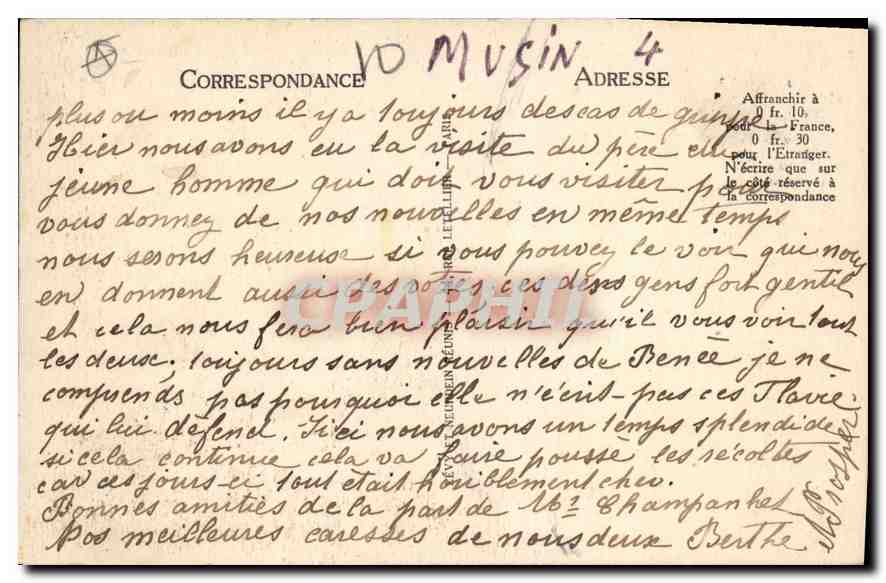 10 MUSIN 4
CORRESPONDANCE ADRESSE
Affranchir à
0 fr. 10,
pour la France,
0 fr. 30
pour l'Etranger.
N'écrire que sur
le côté réservé à
la correspondance
plus ou moins il y a toujours des cas de grippe
Hier nous avons eu la visite du père du
jeune homme qui doit vous visiter pour
vous donnez de nos nouvelles en même temps
nous serons heureuse si vous pouvez le voir qui nous
en donnent aussi des votres, ces des gens fort gentil
et cela nous fera bien plaisir qu'il vous voir tout
les deux; toujours sans nouvelles de Benée je ne
comprends pas pourquoi elle n'écrit-pas ces Flavie
qui lui défend. Ici nous avons un temps splendide
si cela continue cela va faire poussè les récoltes
car ces jours-ci tout était horriblement cher.
Bonnes amitiés de la part de Mr Champanhet
Nos meilleures caresses de nous deux Berthe
et Prosper
CPAPHIL
LÉVY ET NEURDEIN RÉUNIS LETELLIER PARIS